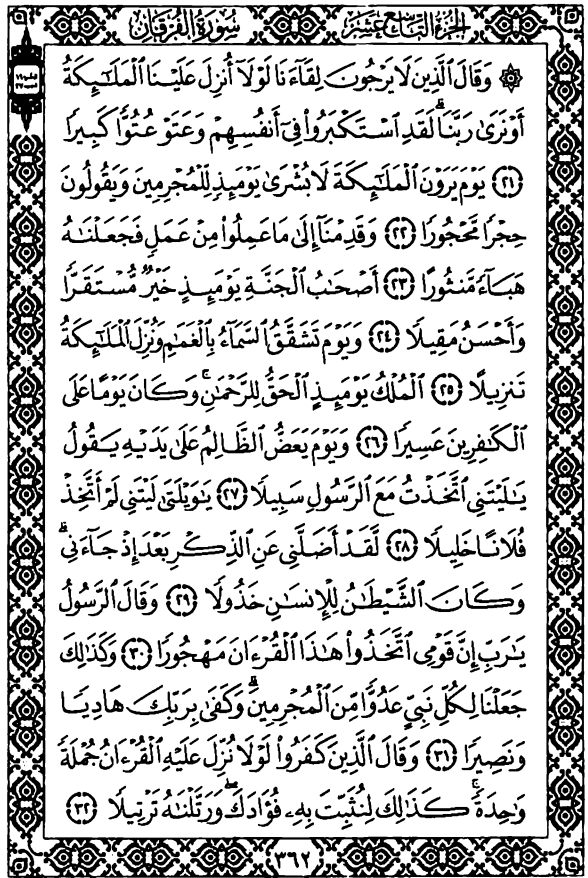 الجزء التاسع عشر سورة الفرقان
۞ وَقَالَ ٱلَّذِينَ لَا يَرْجُونَ لِقَآءَنَا لَوْلَآ أُنزِلَ عَلَيْنَا ٱلْمَلَٰٓئِكَةُ
أَوْ نَرَىٰ رَبَّنَاۗ لَقَدِ ٱسْتَكْبَرُوا۟ فِىٓ أَنفُسِهِمْ وَعَتَوْ عُتُوًّا كَبِيرًا
٢١ يَوْمَ يَرَوْنَ ٱلْمَلَٰٓئِكَةَ لَا بُشْرَىٰ يَوْمَئِذٍ لِّلْمُجْرِمِينَ وَيَقُولُونَ
حِجْرًا مَّحْجُورًا ٢٢ وَقَدِمْنَآ إِلَىٰ مَا عَمِلُوا۟ مِنْ عَمَلٍ فَجَعَلْنَٰهُ
هَبَآءً مَّنثُورًا ٢٣ أَصْحَٰبُ ٱلْجَنَّةِ يَوْمَئِذٍ خَيْرٌ مُّسْتَقَرًّا
وَأَحْسَنُ مَقِيلًا ٢٤ وَيَوْمَ تَشَقَّقُ ٱلسَّمَآءُ بِٱلْغَمَٰمِ وَنُزِّلَ ٱلْمَلَٰٓئِكَةُ
تَنزِيلًا ٢٥ ٱلْمُلْكُ يَوْمَئِذٍ ٱلْحَقُّ لِلرَّحْمَٰنِۚ وَكَانَ يَوْمًا عَلَى
ٱلْكَٰفِرِينَ عَسِيرًا ٢٦ وَيَوْمَ يَعَضُّ ٱلظَّالِمُ عَلَىٰ يَدَيْهِ يَقُولُ
يَٰلَيْتَنِى ٱتَّخَذْتُ مَعَ ٱلرَّسُولِ سَبِيلًا ٢٧ يَٰوَيْلَتَىٰ لَيْتَنِى لَمْ أَتَّخِذْ
فُلَانًا خَلِيلًا ٢٨ لَّقَدْ أَضَلَّنِى عَنِ ٱلذِّكْرِ بَعْدَ إِذْ جَآءَنِىۗ
وَكَانَ ٱلشَّيْطَٰنُ لِلْإِنسَٰنِ خَذُولًا ٢٩ وَقَالَ ٱلرَّسُولُ
يَٰرَبِّ إِنَّ قَوْمِى ٱتَّخَذُوا۟ هَٰذَا ٱلْقُرْءَانَ مَهْجُورًا ٣٠ وَكَذَٰلِكَ
جَعَلْنَا لِكُلِّ نَبِىٍّ عَدُوًّا مِّنَ ٱلْمُجْرِمِينَۗ وَكَفَىٰ بِرَبِّكَ هَادِيًا
وَنَصِيرًا ٣١ وَقَالَ ٱلَّذِينَ كَفَرُوا۟ لَوْلَا نُزِّلَ عَلَيْهِ ٱلْقُرْءَانُ جُمْلَةً
وَٰحِدَةًۚ كَذَٰلِكَ لِنُثَبِّتَ بِهِۦ فُؤَادَكَۖ وَرَتَّلْنَٰهُ تَرْتِيلًا ٣٢
٣٦٢